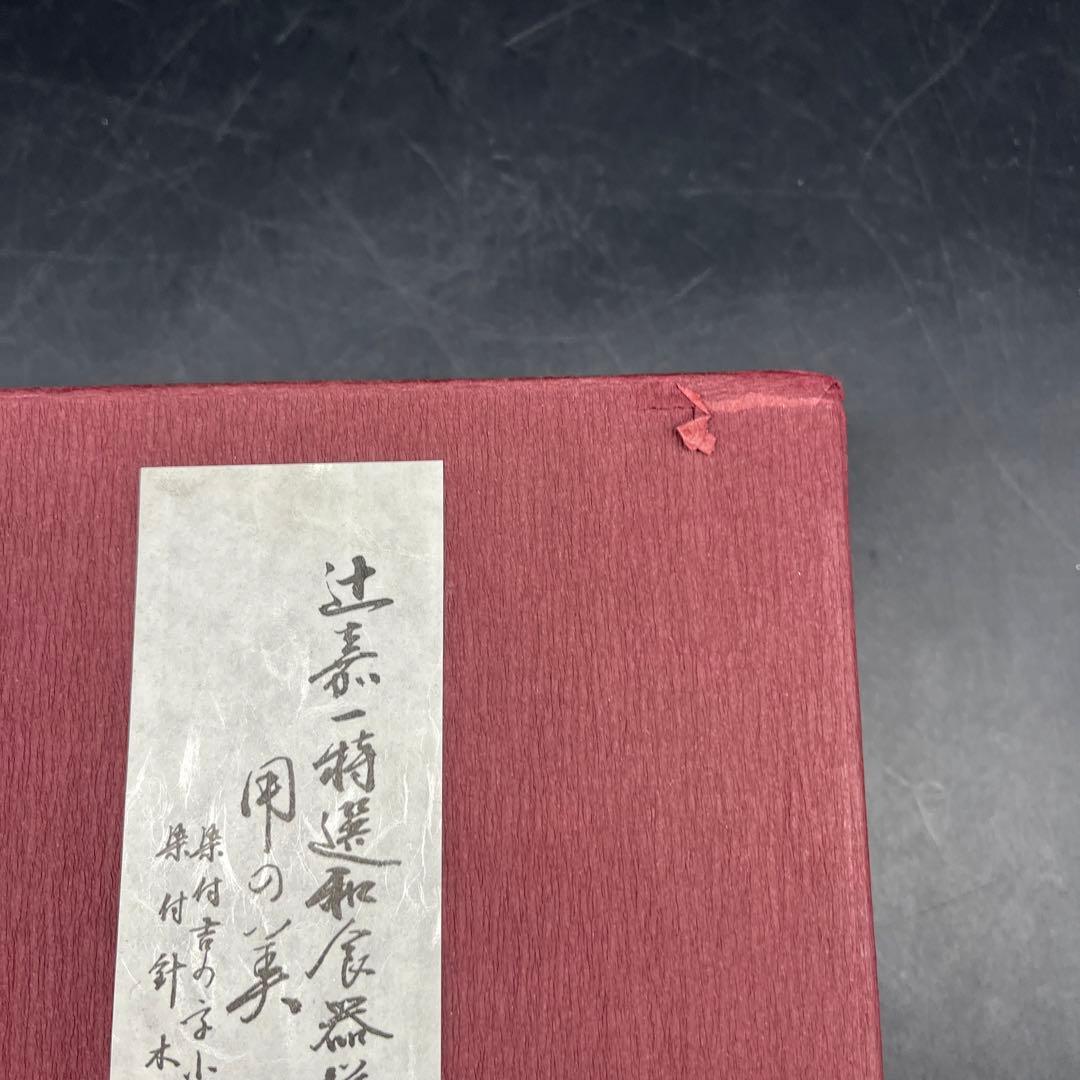 辻嘉一特選和食器
用の美
染付吉の字小
染付針木